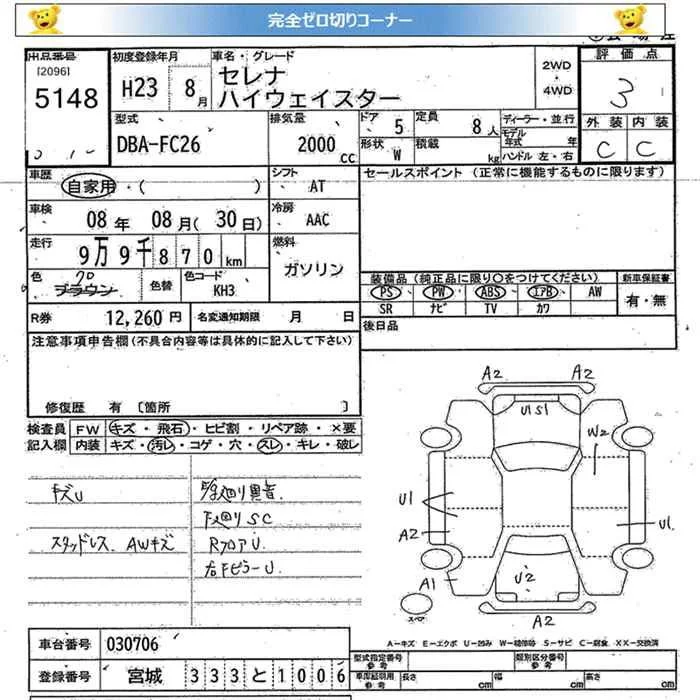 完全ゼロ切りコーナー
出品番号
[2096]
5148
初度登録年月
H23 8月
車名・グレード
セレナ
ハイウェイスター
2WD
・
4WD
評価点
3
外装 内装
C C
型式
DBA-FC26
排気量
2000 CC
ドア 5
定員 8人
形状 W
積載 kg
ディーラー・並行
モデル年式 年
ハンドル 左・右
車歴
自家用・( )
シフト
AT
セールスポイント (正常に機能するものに限ります)
車検
08年 08月(30日)
冷房
AAC
走行
9万9千870km
燃料
ガソリン
色
クロ
ブラウン
色替
色コード
KH3
装備品 (純正品に限り○をつけてください)
新車保証書
PS PW ABS エアB AW
有・無
SR ナビ TV カワ
R券 12,260円
名変通知期限 月 日
後日品
注意事項申告欄(不具合内容等は具体的に記入して下さい)
修復歴 有 〔箇所 〕
検査員記入欄
FW キズ・飛石・ヒビ割・リペア跡・×要
内装 キズ・汚レ・コゲ・穴・スレ・キレ・破レ
キズU
スタッドレス. AWキズ
下廻りSC
RフロアU.
右FピラーU.
A2 A2
U1 S1
W2
U1
A2
U1
A1
U2
スペア
A2
A-キズ E-エクボ U-凹み W-補修跡 S-サビ C-腐食 XX-交換済
車台番号 030706
登録番号 宮城 333と1006
型式指定番号 参考
類別区分番号 参考
車庫証明用 参考 長さ cm 幅 cm 高さ cm